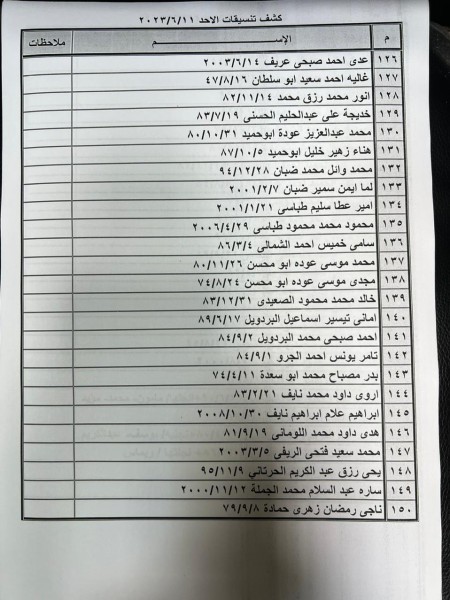 كشف تنسيقات الاحد ٢٠٢٣/٦/١١
م الإســـــم ملاحظات
١٢٦ عدى احمد صبحى عريف ٢٠٠٣/٦/١٤
١٢٧ غاليه احمد سعيد ابو سلطان ٤٧/٨/١٦
١٢٨ انور محمد رزق محمد ٨٢/١١/١٤
١٢٩ خديجة على عبدالحليم الحسنى ٨٣/٧/١٩
١٣٠ محمد عبدالعزيز عودة ابوحميد ٨٠/١٠/٣١
١٣١ هناء زهير خليل ابوحميد ٨٧/١٠/٥
١٣٢ محمد وائل محمد ضبان ٩٤/١٢/٢٨
١٣٣ لما ايمن سمير ضبان ٢٠٠١/٢/٧
١٣٤ امير عطا سليم طباسى ٢٠٠١/١/٢١
١٣٥ محمود محمد محمود طباسى ٢٠٠٦/٤/٢٩
١٣٦ سامى خميس احمد الشمالى ٨٦/٣/٤
١٣٧ محمد موسى عوده ابو محسن ٨٠/١١/٢٦
١٣٨ مجدى موسى عوده ابو محسن ٧٤/٨/٢٤
١٣٩ خالد محمد محمود الصعيدى ٨٣/١٢/٣١
١٤٠ امانى تيسير اسماعيل البردويل ٨٩/٦/١٧
١٤١ احمد صبحى محمد البردويل ٨٤/٩/٢
١٤٢ تامر يونس احمد الجرو ٨٤/٩/١
١٤٣ بدر مصباح محمد ابو سعدة ٧٤/٤/١١
١٤٤ اروى داود محمد نايف ٨٣/٢/٢١
١٤٥ ابراهيم علام ابراهيم نايف ٢٠٠٨/١٠/٣٠
١٤٦ هدى داود محمد اللومانى ٨١/٩/١٩
١٤٧ محمد سعيد فتحى الريفى ٢٠٠٣/٣/٥
١٤٨ يحى رزق عبد الكريم الحرتاني ٩٥/١١/٩
١٤٩ ساره عبد السلام محمد الجملة ٢٠٠٠/١١/١٢
١٥٠ ناجى رمضان زهرى حمادة ٧٩/٩/٨